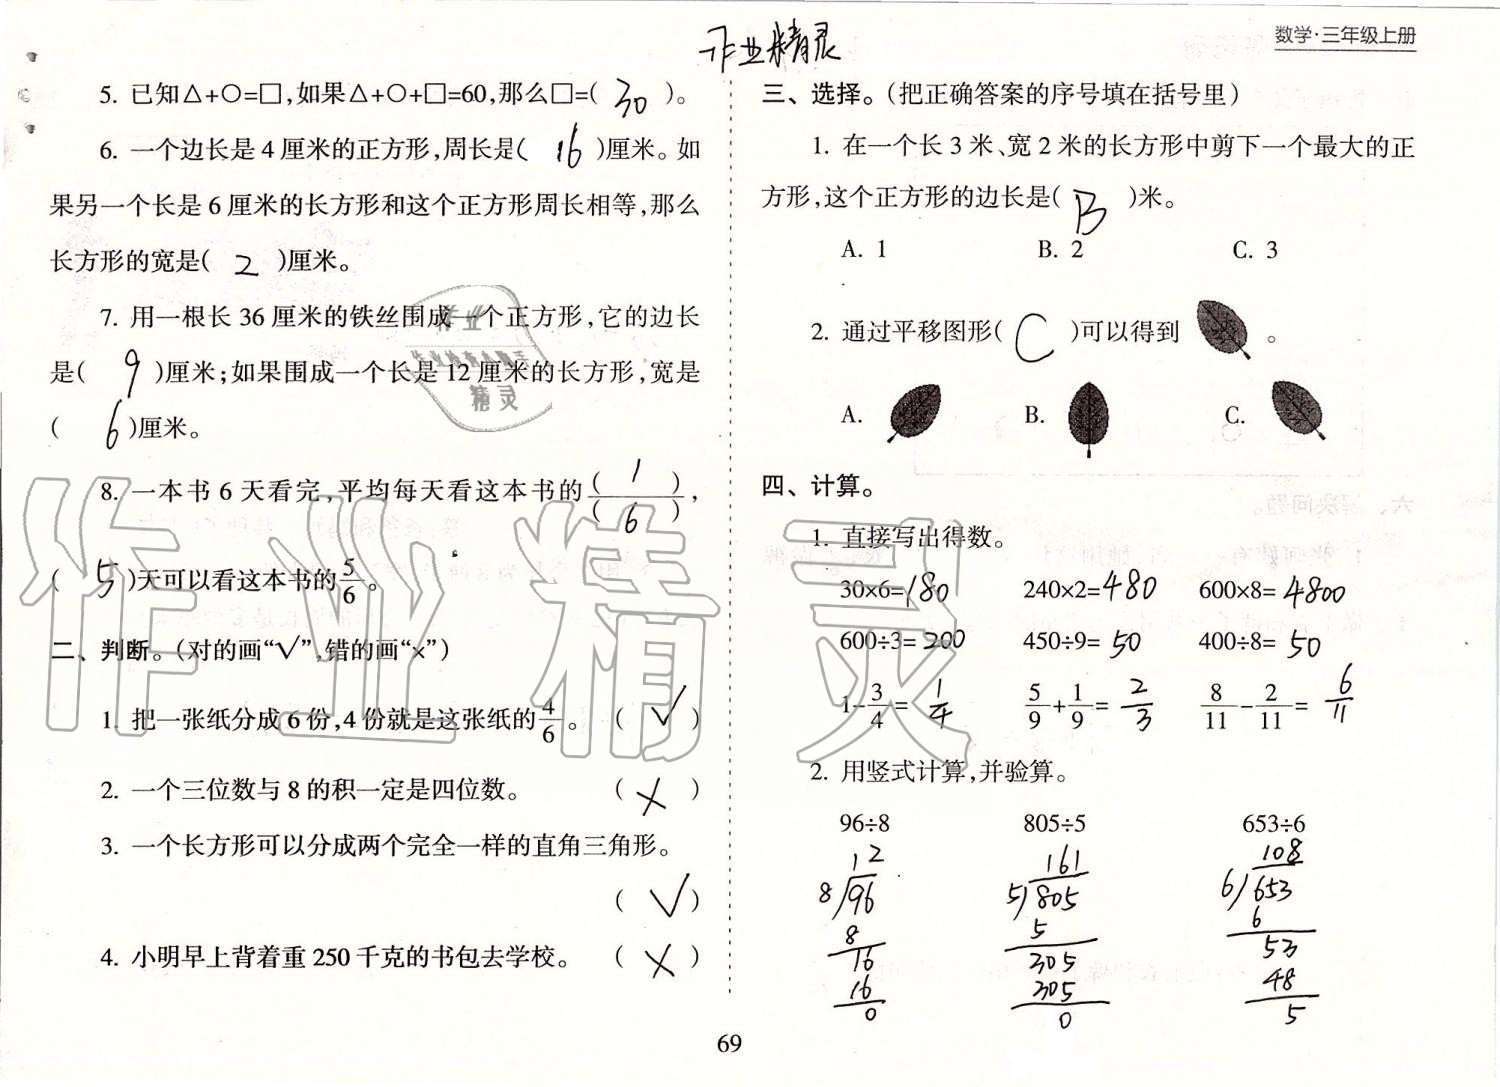 作业精灵
数学·三年级上册
5. 已知△+○=□,如果△+○+□=60,那么□=( 30 )。
6. 一个边长是4厘米的正方形,周长是( 16 )厘米。如
果另一个长是6厘米的长方形和这个正方形周长相等,那么
长方形的宽是( 2 )厘米。
7. 用一根长36厘米的铁丝围成一个正方形,它的边长
是( 9 )厘米;如果围成一个长是12厘米的长方形,宽是
( 6 )厘米。
8. 一本书6天看完,平均每天看这本书的(1)/(6),
( 5 )天可以看这本书的5/6。
二、判断。(对的画“√”,错的画“×”)
1. 把一张纸分成6份,4份就是这张纸的4/6。 ( √ )
2. 一个三位数与8的积一定是四位数。 ( × )
3. 一个长方形可以分成两个完全一样的直角三角形。
( √ )
4. 小明早上背着重250千克的书包去学校。 ( × )
三、选择。(把正确答案的序号填在括号里)
1. 在一个长3米、宽2米的长方形中剪下一个最大的正
方形,这个正方形的边长是( B )米。
A. 1 B. 2 C. 3
2. 通过平移图形( C )可以得到 。
A. B. C.
四、计算。
1. 直接写出得数。
30×6=180 240×2=480 600×8=4800
600÷3=200 450÷9=50 400÷8=50
1-3/4=1/4 5/9+1/9=2/3 8/11-2/11=6/11
2. 用竖式计算,并验算。
96÷8 805÷5 653÷6
12 161 108
8/96 5/805 6/653
8 5 6
16 305 53
16 305 48
0 0 5
69
作业精灵
作业
作业检查小助手
精灵